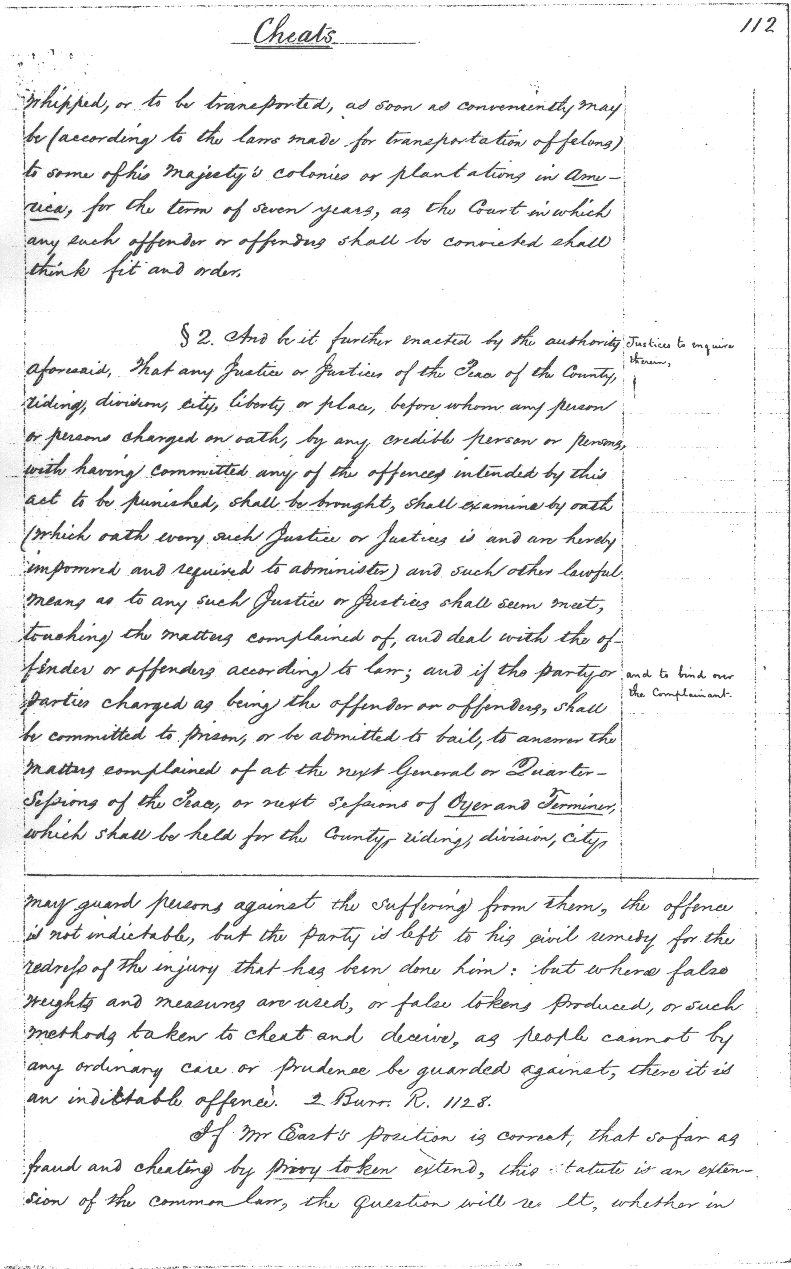 Cheats
112
whipped, or to be transported, as soon as conveniently may
be (according to the laws made for transportation of felons)
to some of his Majesty's colonies or plantations in Ame-
rica, for the term of seven years, as the Court in which
any such offender or offenders shall be convicted shall
think fit and order.
§ 2. And be it further enacted by the authority
Justices to enquire
therein,
aforesaid, That any Justice or Justices of the Peace of the County,
riding, division, city, liberty or place, before whom any person
or persons charged on oath, by any credible person or persons,
with having committed any of the offences intended by this
act to be punished, shall be brought, shall examine by oath
(which oath every such Justice or Justices is and are hereby
impowered and required to administer) and such other lawful
means as to any such Justice or Justices shall seem meet,
touching the matters complained of, and deal with the of-
fender or offenders according to law; and if the party or
and to bind over
the Complainant.
parties charged as being the offender or offenders, shall
be committed to prison, or be admitted to bail, to answer the
matters complained of at the next General or Quarter-
Sessions of the Peace, or next sessions of Oyer and Terminer,
which shall be held for the County, riding, division, city,
may guard persons against the suffering from them, the offence
is not indictable, but the party is left to his civil remedy for the
redress of the injury that has been done him: but where false
weights and measures are used, or false tokens produced, or such
methods taken to cheat and deceive, as people cannot by
any ordinary care or prudence be guarded against, there it is
an indictable offence. 2 Burr. R. 1128.
If Mr East's position is correct, that so far as
fraud and cheating by privy token extend, this statute is an exten-
sion of the common law, the question will re lt, whether in